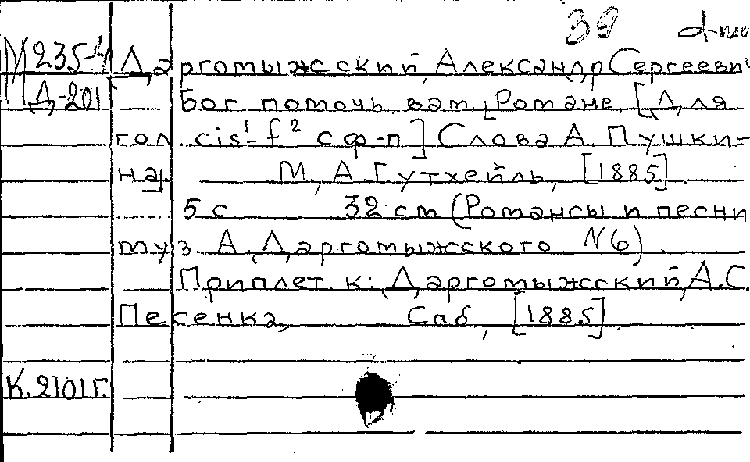 39 d-moll
М 235-4 Даргомыжский, Александр Сергеевич
Д-201 Бог помочь вам [Романс. [Для
гол. cis¹-f² с ф-п] Слова А. Пушки-
на. М, А Гутхейль, [1885].
5 с 32 см (Романсы и песни
муз А. Даргомыжского №6)
Приплет. к: Даргомыжский, А.С.
Песенка, Саб, [1885].
К. 2101 г.